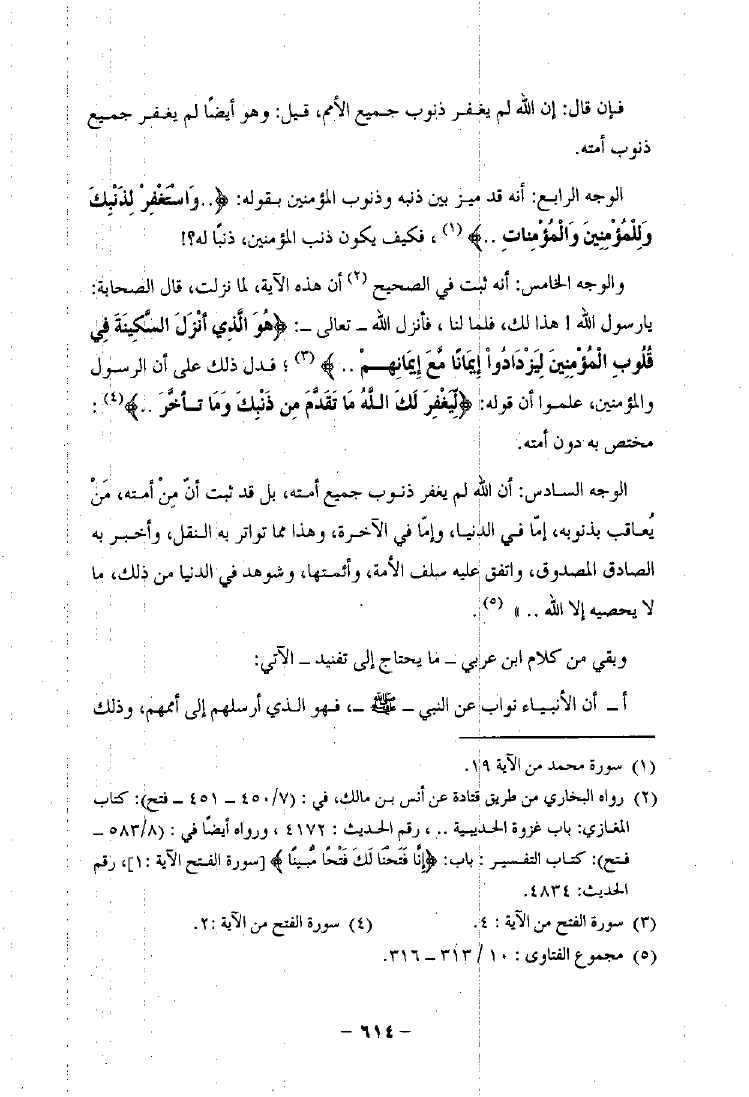 فإن قال: إن الله لم يغفر ذنوب جميع الأمم، قيل: وهو أيضًا لم يغفر جميع
ذنوب أمته.
الوجه الرابع: أنه قد ميز بين ذنبه وذنوب المؤمنين بقوله: ﴿..وَاسْتَغْفِرْ لِذَنْبِكَ
وَلِلْمُؤْمِنِينَ وَالْمُؤْمِنَاتِ ..﴾ (١) ، فكيف يكون ذنب المؤمنين، ذنبًا له؟!
والوجه الخامس: أنه ثبت في الصحيح (٢) أن هذه الآية، لما نزلت، قال الصحابة:
يارسول الله ! هذا لك، فلما لنا ، فأنزل الله ـ تعالى ـ: ﴿هُوَ الَّذِي أَنْزَلَ السَّكِينَةَ فِي
قُلُوبِ الْمُؤْمِنِينَ لِيَزْدَادُواْ إِيمَانًا مَّعَ إِيمَانِهِمْ .. ﴾ (٣) ؛ فدل ذلك على أن الرسول
والمؤمنين، علموا أن قوله: ﴿لِّيَغْفِرَ لَكَ اللَّهُ مَا تَقَدَّمَ مِن ذَنْبِكَ وَمَا تَأَخَّرَ ..﴾(٤) :
مختص به دون أمته.
الوجه السادس: أن الله لم يغفر ذنوب جميع أمته، بل قد ثبت أنّ مِنْ أمته، مَنْ
يُعاقب بذنوبه، إمّا في الدنيا، وإمّا في الآخرة، وهذا مما تواتر به النقل، وأخبر به
الصادق المصدوق، واتفق عليه سلف الأمة، وأئمتها، وشوهد في الدنيا من ذلك، ما
لا يحصيه إلا الله .. » (٥) .
وبقي من كلام ابن عربي ـ ما يحتاج إلى تفنيد ـ الآتي:
أ ـ أن الأنبياء نواب عن النبي ـ ﷺ ـ، فهو الذي أرسلهم إلى أممهم، وذلك
(١) سورة محمد من الآية ١٩.
(٢) رواه البخاري من طريق قتادة عن أنس بن مالك، في : (٤٥٠/٧ ـ ٤٥١ ـ فتح): كتاب
المغازي: باب غزوة الحديبية .. ، رقم الحديث : ٤١٧٢ ، ورواه أيضًا في : (٥٨٣/٨ ـ
فتح): كتاب التفسير : باب: ﴿إِنَّا فَتَحْنَا لَكَ فَتْحًا مُّبِينًا ﴾ [سورة الفتح الآية :١]، رقم
الحديث: ٤٨٣٤.
(٣) سورة الفتح من الآية : ٤. (٤) سورة الفتح من الآية :٢.
(٥) مجموع الفتاوى : ١٠ / ٣١٣ ـ ٣١٦.
ـ ٦١٤ ـ